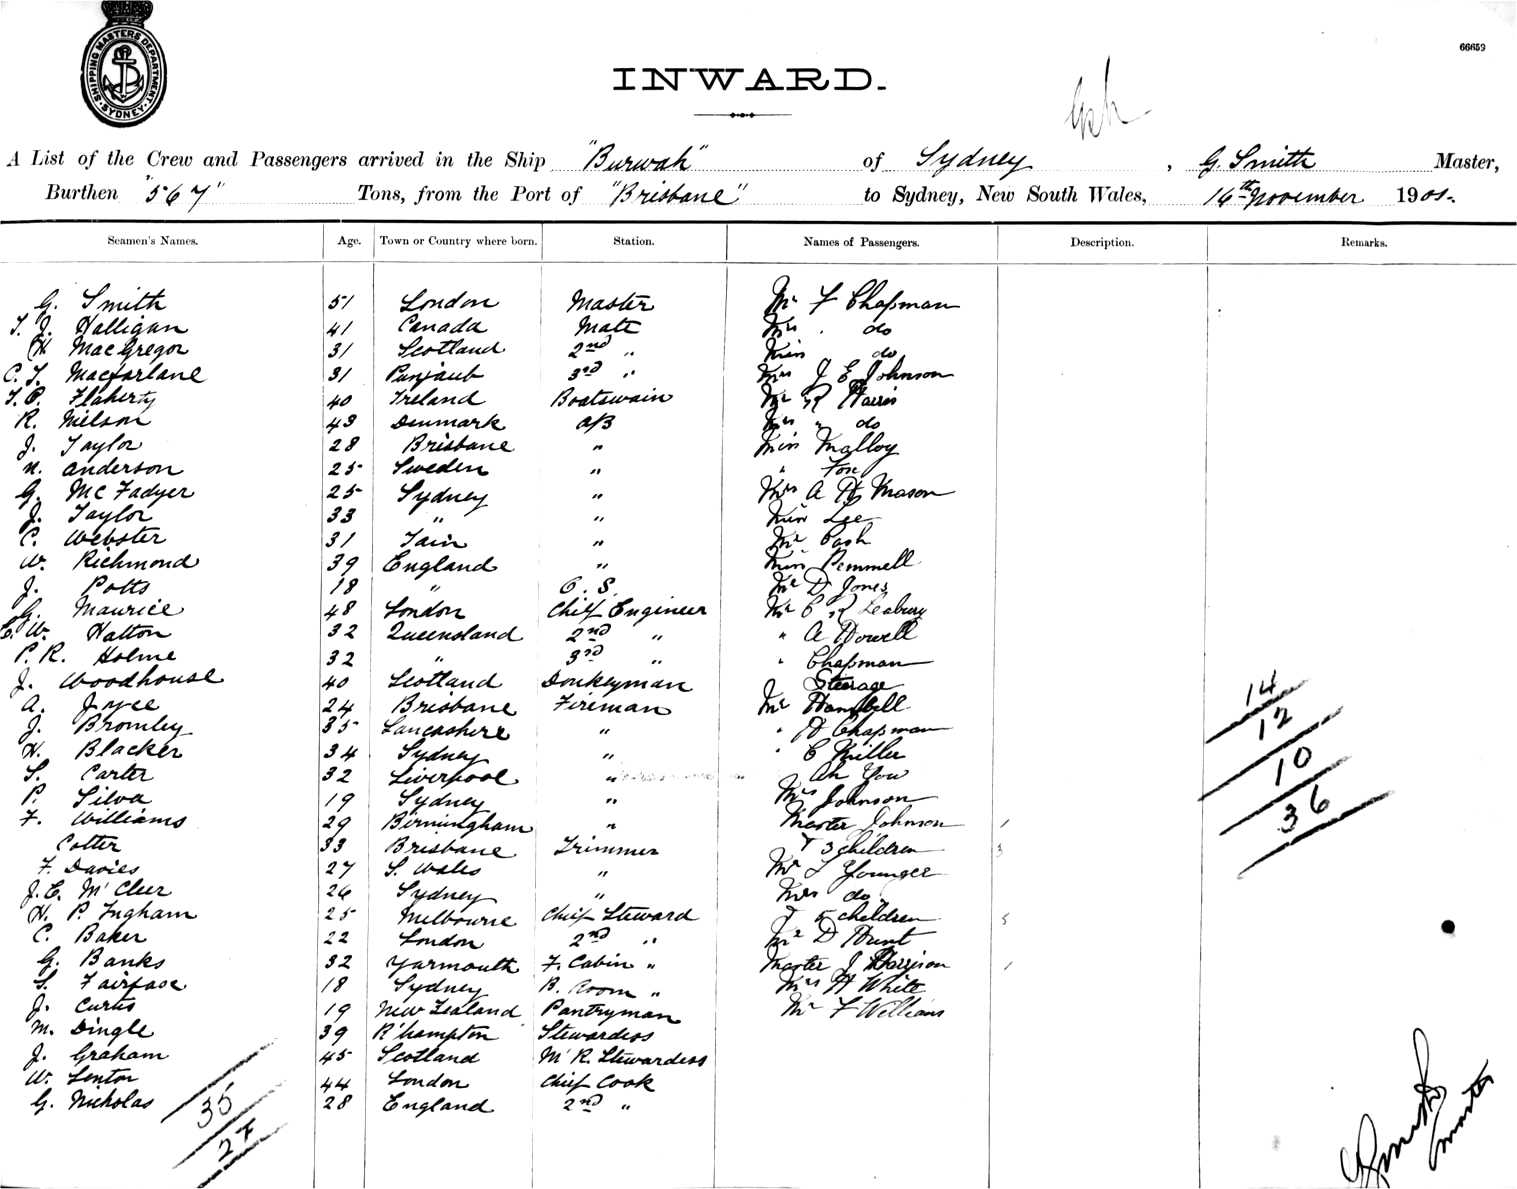 SHIPPING MASTERS DEPARTMENT
SYDNEY
66659
INWARD.
A List of the Crew and Passengers arrived in the Ship "Burwah" of Sydney, G. Smith Master,
Burthen "567" Tons, from the Port of "Brisbane" to Sydney, New South Wales, 16th November 1901.
Seamen's Names. Age. Town or Country where born. Station. Names of Passengers. Description. Remarks.
G. Smith 51 London Master Mr F Chapman
T. J. Halligan 41 Canada Mate Mrs . do
H MacGregor 31 Scotland 2nd " Miss do
C. T. Macfarlane 31 Punjaub 3rd " Mrs J E Johnson
T. P. Flaherty 40 Ireland Boatswain Mr R Harris
R. Nielson 43 Denmark A/B Mrs " do
J. Taylor 28 Brisbane " Miss Malloy
N. Anderson 25 Sweden " " Fox
G. McFadyer 25 Sydney " Mrs A H Mason
J. Taylor 33 " " Miss Lee
C. Webster 31 Tain " Mr Cash
W. Richmond 39 England " Miss Pemmell
J. Potts 18 " O.S. Mr D Jones
G. Maurice 48 London Chief Engineer Mr C R Seabury
C. W. Hatton 32 Queensland 2nd " " A Dowell
P. R. Holme 32 " 3rd " " Chapman
J. Woodhouse 40 Scotland Donkeyman Steerage
A. Joyce 24 Brisbane Fireman Mr
J. Bromley 35 Lancashire " " H Chapman
H. Blacker 34 Sydney " " C Miller
S. Carter 32 Liverpool " Ah You
P. Silva 19 Sydney " Mrs Johnson
F. Williams 29 Birmingham " Master Johnson 1
Cotter 33 Brisbane Trimmer & 3 children 3
F. Davies 27 S. Wales " Mr T Younger
J. C. McCleer 26 Sydney " Mrs do.
H. P. Ingham 25 Melbourne Chief Steward & 5 children 5
C. Baker 22 London 2nd " Mr D Hunt
G. Banks 32 Yarmouth F. Cabin " Master J Harrison 1
S. Fairfase 18 Sydney B. Room " Mrs H White
J. Curtis 19 New Zealand Pantryman Mr F Williams
M. Dingle 39 R'hampton Stewardess
J. Graham 45 Scotland M. R. Stewardess
W. Senton 44 London Chief Cook
G. Nicholas 28 England 2nd "
14
12
10
36
35
27
G Smith
Master